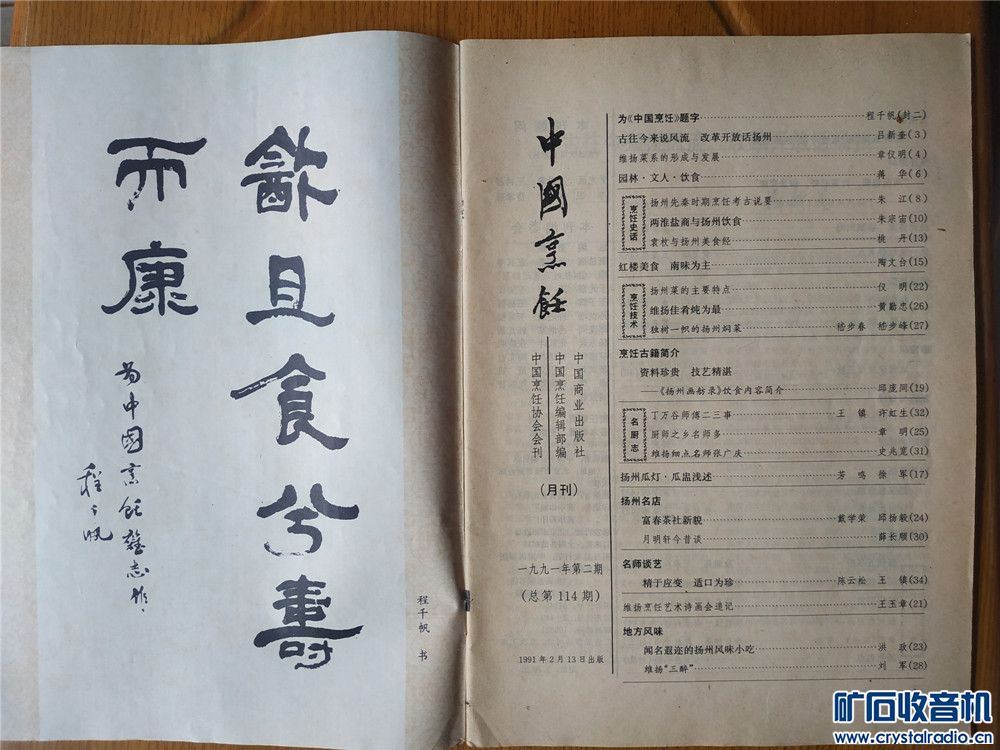 㱃且食兮壽
而康
为中國烹飪雜志作
程千帆
程千帆 书
中國烹飪
中国商业出版社
中国烹饪编辑部编
中国烹饪协会会刊
(月刊)
一九九一年第二期
(总第114期)
1991年2月13日出版
为《中国烹饪》题字 程千帆(封二)
古往今来说风流 改革开放话扬州 吕新奎(3)
维扬菜系的形成与发展 章仪明(4)
园林·文人·饮食 蒋华(6)
烹饪史话
扬州先秦时期烹饪考古说要 朱江(8)
两淮盐商与扬州饮食 朱宗宙(10)
袁枚与扬州美食经 桃丹(13)
红楼美食 南味为主 陶文台(15)
烹饪技术
扬州菜的主要特点 仪明(22)
维扬佳肴炖为最 黄勤忠(26)
独树一帜的扬州焖菜 嵇步春 嵇步峰(27)
烹饪古籍简介
资料珍贵 技艺精湛
——《扬州画舫录》饮食内容简介 邱庞同(19)
名厨志
丁万谷师傅二三事 王镇 许虹生(32)
厨师之乡名师多 章明(25)
维扬细点名师张广庆 史兆宽(31)
扬州瓜灯·瓜盅浅述 芳鸣 徐军(17)
扬州名店
富春茶社新貌 戴学荣 邱扬毅(24)
月明轩今昔谈 薛长顺(30)
名师谈艺
精于应变 适口为珍 陈云松 王镇(34)
维扬烹饪艺术诗画会追记 王玉章(21)
地方风味
闻名遐迩的扬州风味小吃 洪政(23)
维扬“三醉” 刘军(28)
矿石收音机
www.crystalradio.cn